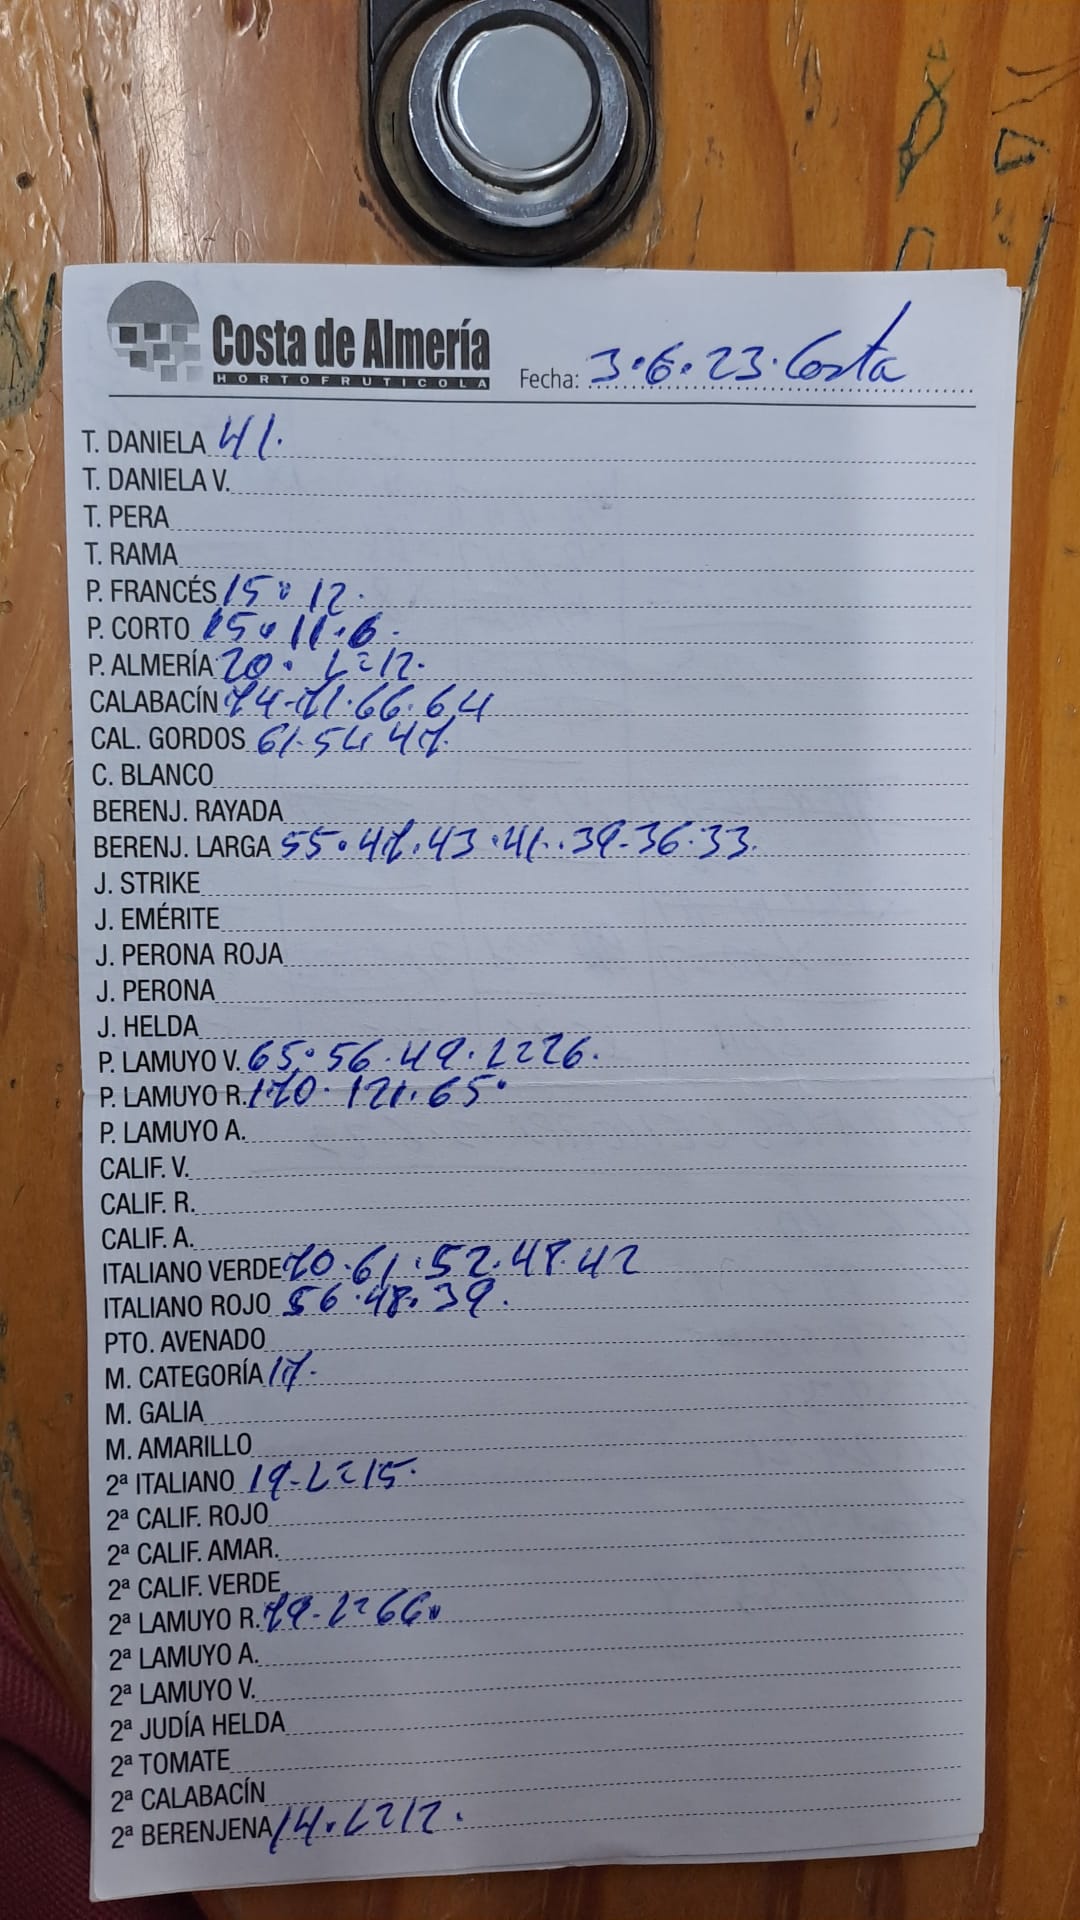 Costa de Almería
HORTOFRUTICOLA
Fecha: 3.6.23. Costa
T. DANIELA 41.
T. DANIELA V.
T. PERA
T. RAMA
P. FRANCÉS 15. 12.
P. CORTO 15. 11. 6.
P. ALMERÍA 20. L=12.
CALABACÍN 74-71.66.64
CAL. GORDOS 61.54 47.
C. BLANCO
BERENJ. RAYADA
BERENJ. LARGA 55.47.43.41..39-36.33.
J. STRIKE
J. EMÉRITE
J. PERONA ROJA
J. PERONA
J. HELDA
P. LAMUYO V. 65.56.49.L=26.
P. LAMUYO R. 170. 121. 65.
P. LAMUYO A.
CALIF. V.
CALIF. R.
CALIF. A.
ITALIANO VERDE 70.61.52.48.42
ITALIANO ROJO 56.48.39.
PTO. AVENADO
M. CATEGORÍA 17.
M. GALIA
M. AMARILLO
2ª ITALIANO 19-L=15.
2ª CALIF. ROJO
2ª CALIF. AMAR.
2ª CALIF. VERDE
2ª LAMUYO R. 79-L=66.
2ª LAMUYO A.
2ª LAMUYO V.
2ª JUDÍA HELDA
2ª TOMATE
2ª CALABACÍN
2ª BERENJENA 14.L=12.